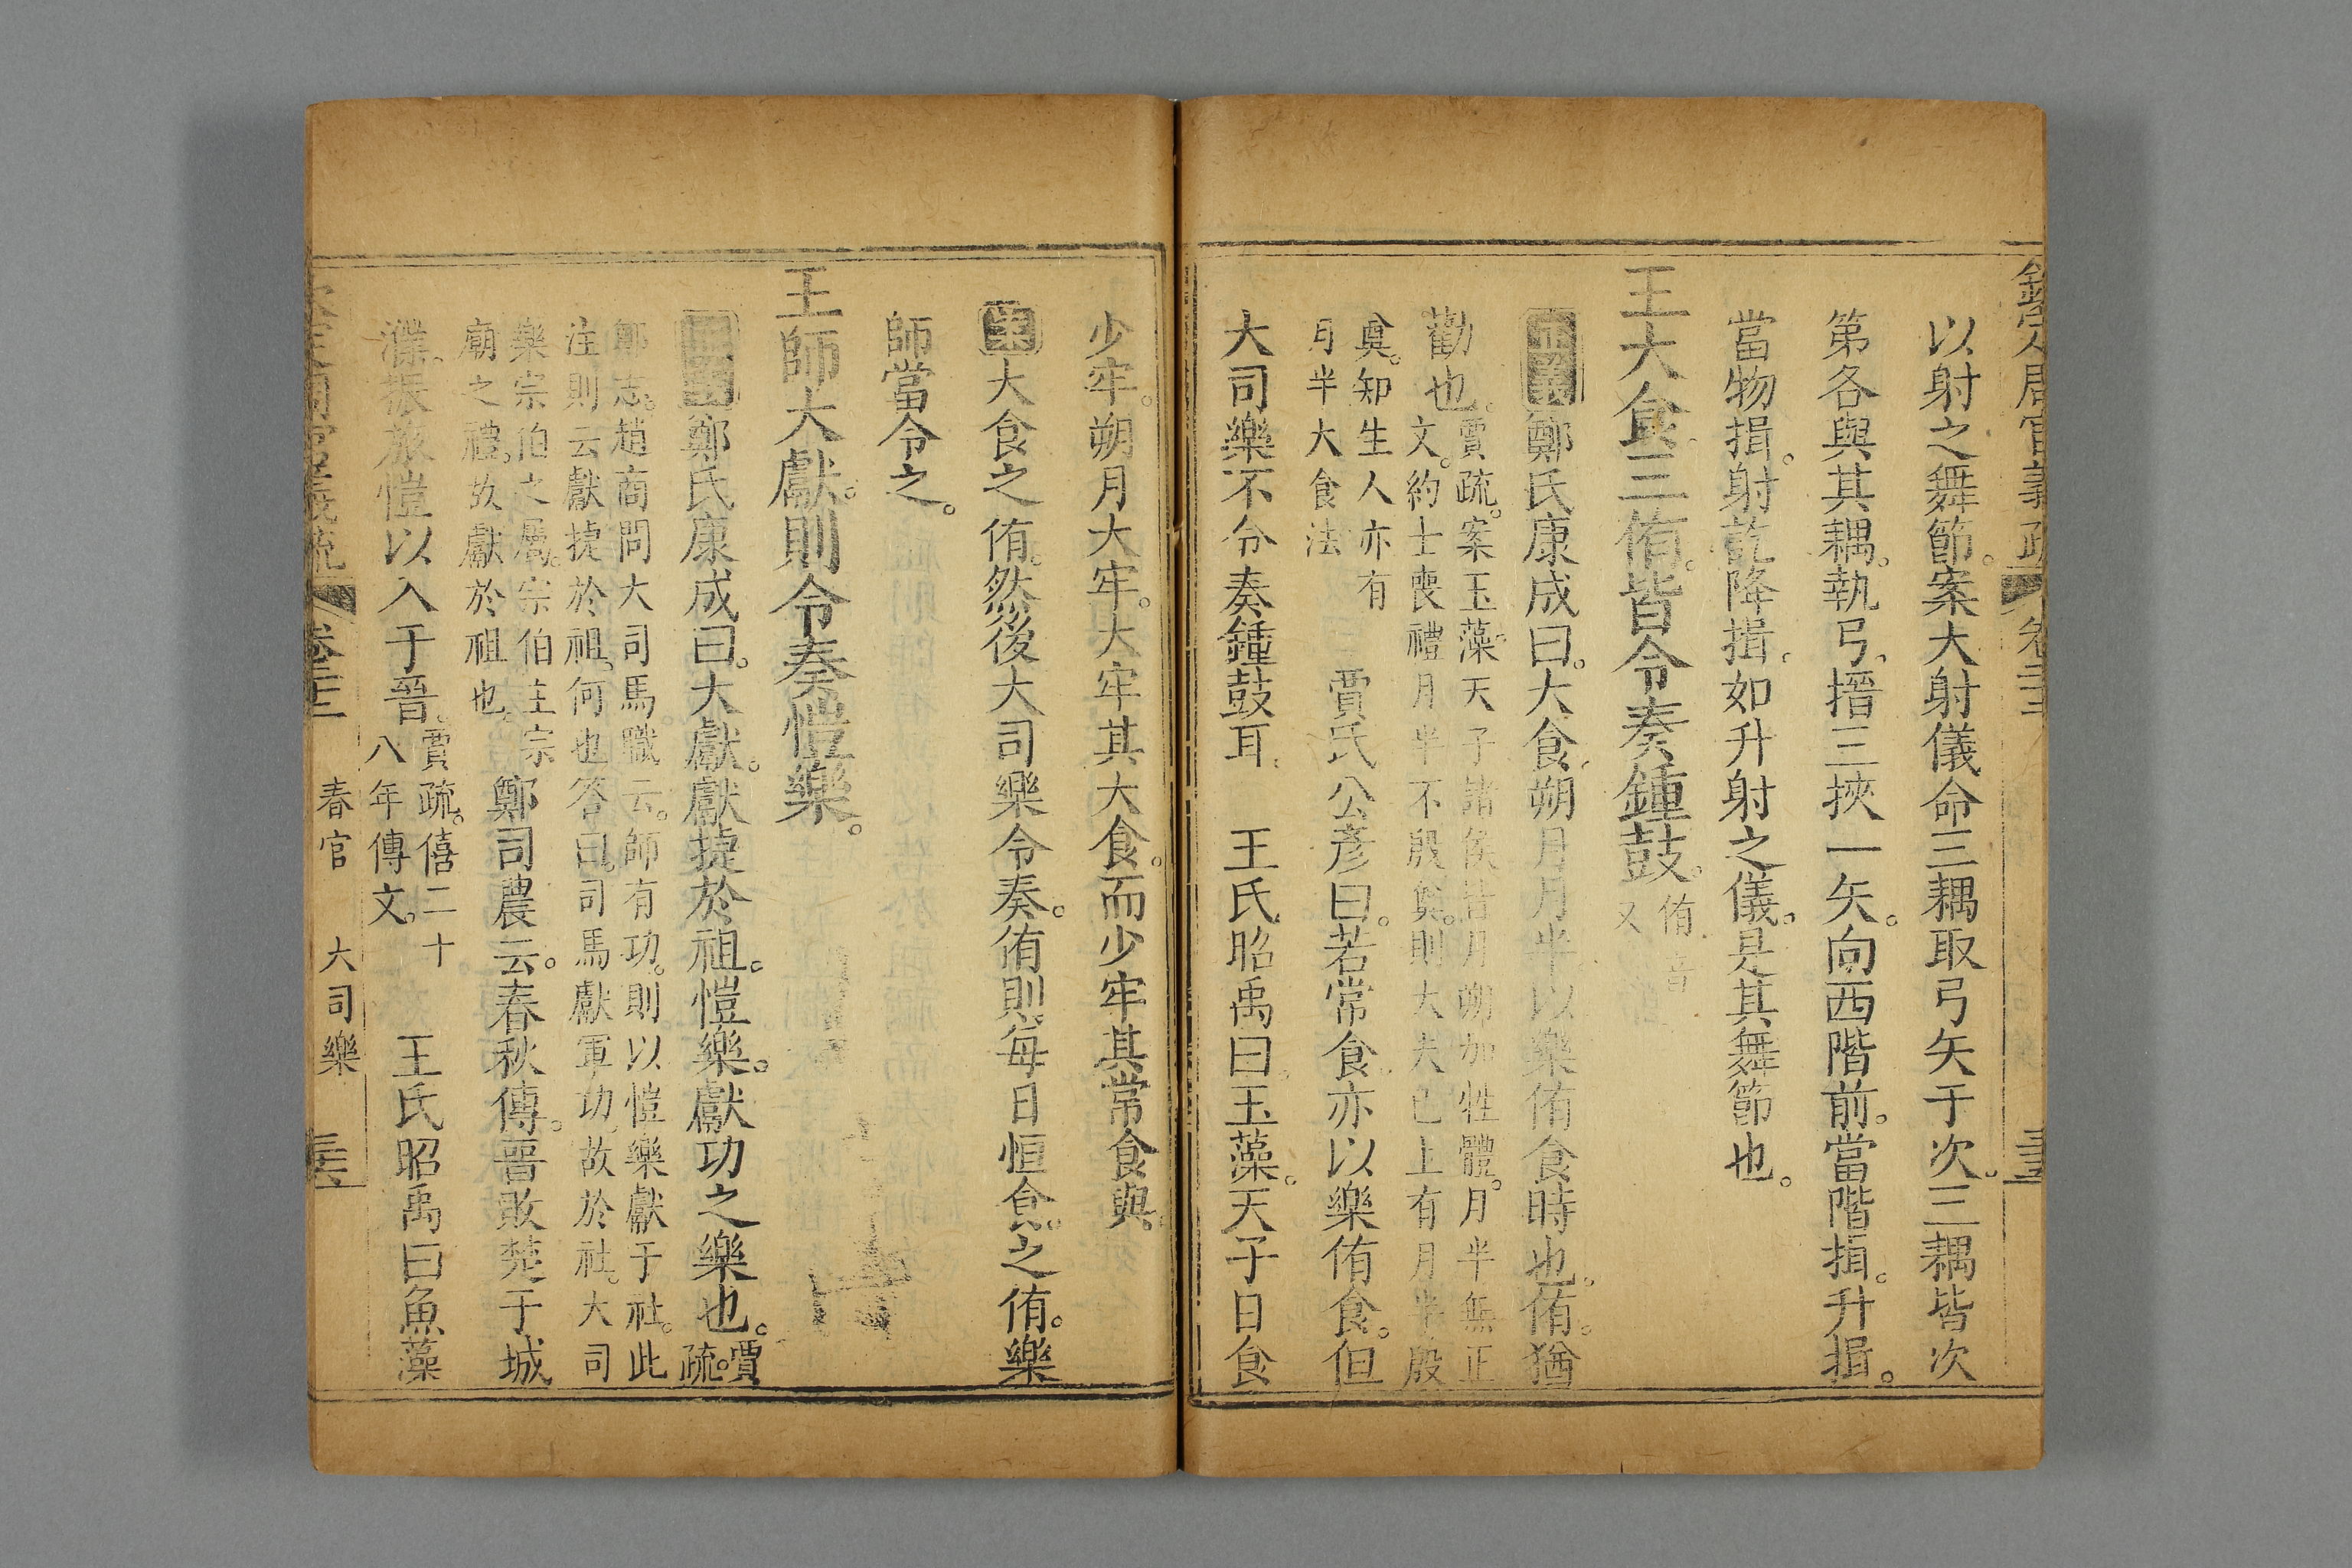 欽定周官義疏 卷二十二
以射之舞節。案大射儀命三耦取弓矢于次。三耦皆次
第各與其耦。執弓。搢三挾一矢。向西階前。當階揖。升揖。
當物揖。射訖降揖。如升射之儀。是其舞節也。
王大食三侑。皆令奏鍾鼓。侑音又
正義鄭氏康成曰。大食朔月月半以樂侑食時也。侑。猶
勸也。賈疏。案玉藻。天子諸侯皆月朔加牲體。月半無正
文。約士喪禮月半不殷奠。則大夫已上有月半殷
奠。知生人亦有
月半大食法
賈氏公彥曰。若常食。亦以樂侑食。但
大司樂不令奏鍾鼓耳。 王氏昭禹曰。玉藻。天子日食
少牢。朔月大牢。大牢其大食。而少牢其常食與。
大食之侑。然後大司樂令奏。侑則每日恒食之侑。樂
師當令之。
王師大獻。則令奏愷樂。
正義鄭氏康成曰。大獻。獻捷於祖。愷樂。獻功之樂也。賈疏。
鄭志。趙商問大司馬職云。師有功。則以愷樂獻于社。此
注則云獻捷於祖。何也。答曰。司馬獻軍功。故於社。大司
樂宗伯之屬。宗伯主宗
廟之禮。故獻於祖也。
鄭司農云。春秋傳。晉敗楚于城
濮。振旅愷以入于晉。賈疏。僖二十八年傳文。 王氏昭禹曰魚藻
卷二十二 春官 大司樂